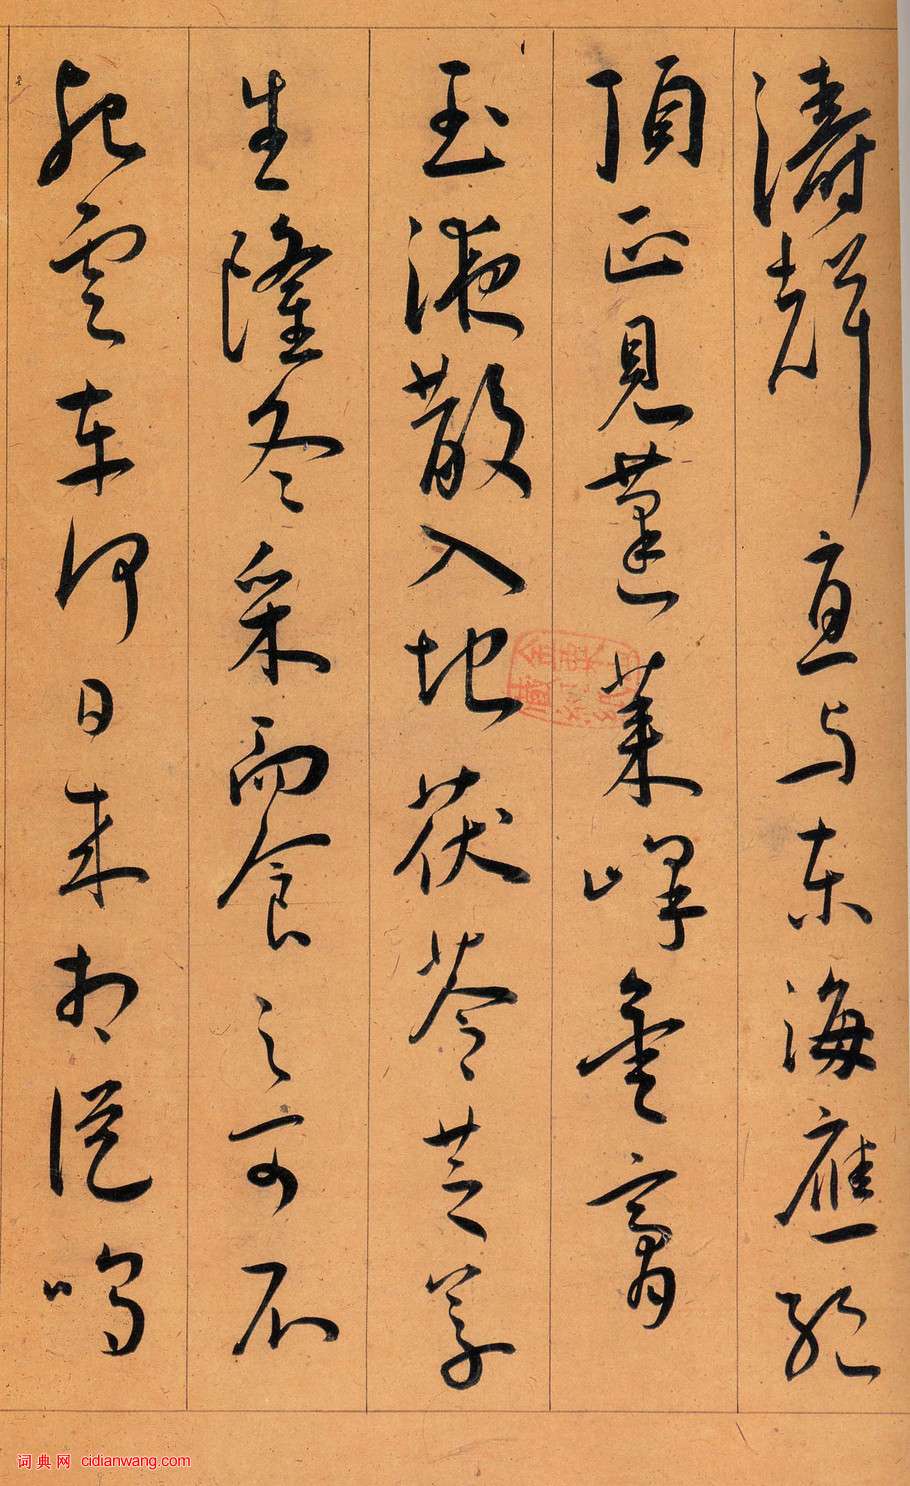 濤聲直与东海應絕
頂正見蓬萊峰金膏
玉液散入地茯苓芝草
生隆冬采而食之可不
死雲車何日來相從鳴
词典网 cidianwang.com